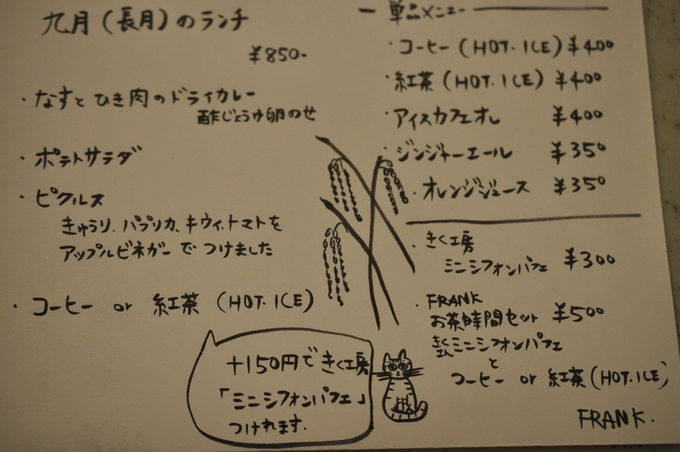 九月(長月)のランチ
¥850-
・なすとひき肉のドライカレー
酢じょうゆ卵のせ
・ポテトサラダ
・ピクルス
きゅうり、パプリカ、キウイ、トマトを
アップルビネガーでつけました
・コーヒー or 紅茶 (HOT. ICE)
+150円できく工房
「ミニシフォンパフェ」
つけれます.
単品メニュー
・コーヒー (HOT. ICE) ¥400
・紅茶 (HOT. ICE) ¥400
・アイスカフェオレ ¥400
・ジンジャーエール ¥350
・オレンジジュース ¥350
・きく工房
ミニシフォンパフェ ¥300
・FRANK
お茶時間セット ¥500
きくさんミニシフォンパフェ
と
コーヒー or 紅茶 (HOT. ICE)
FRANK.